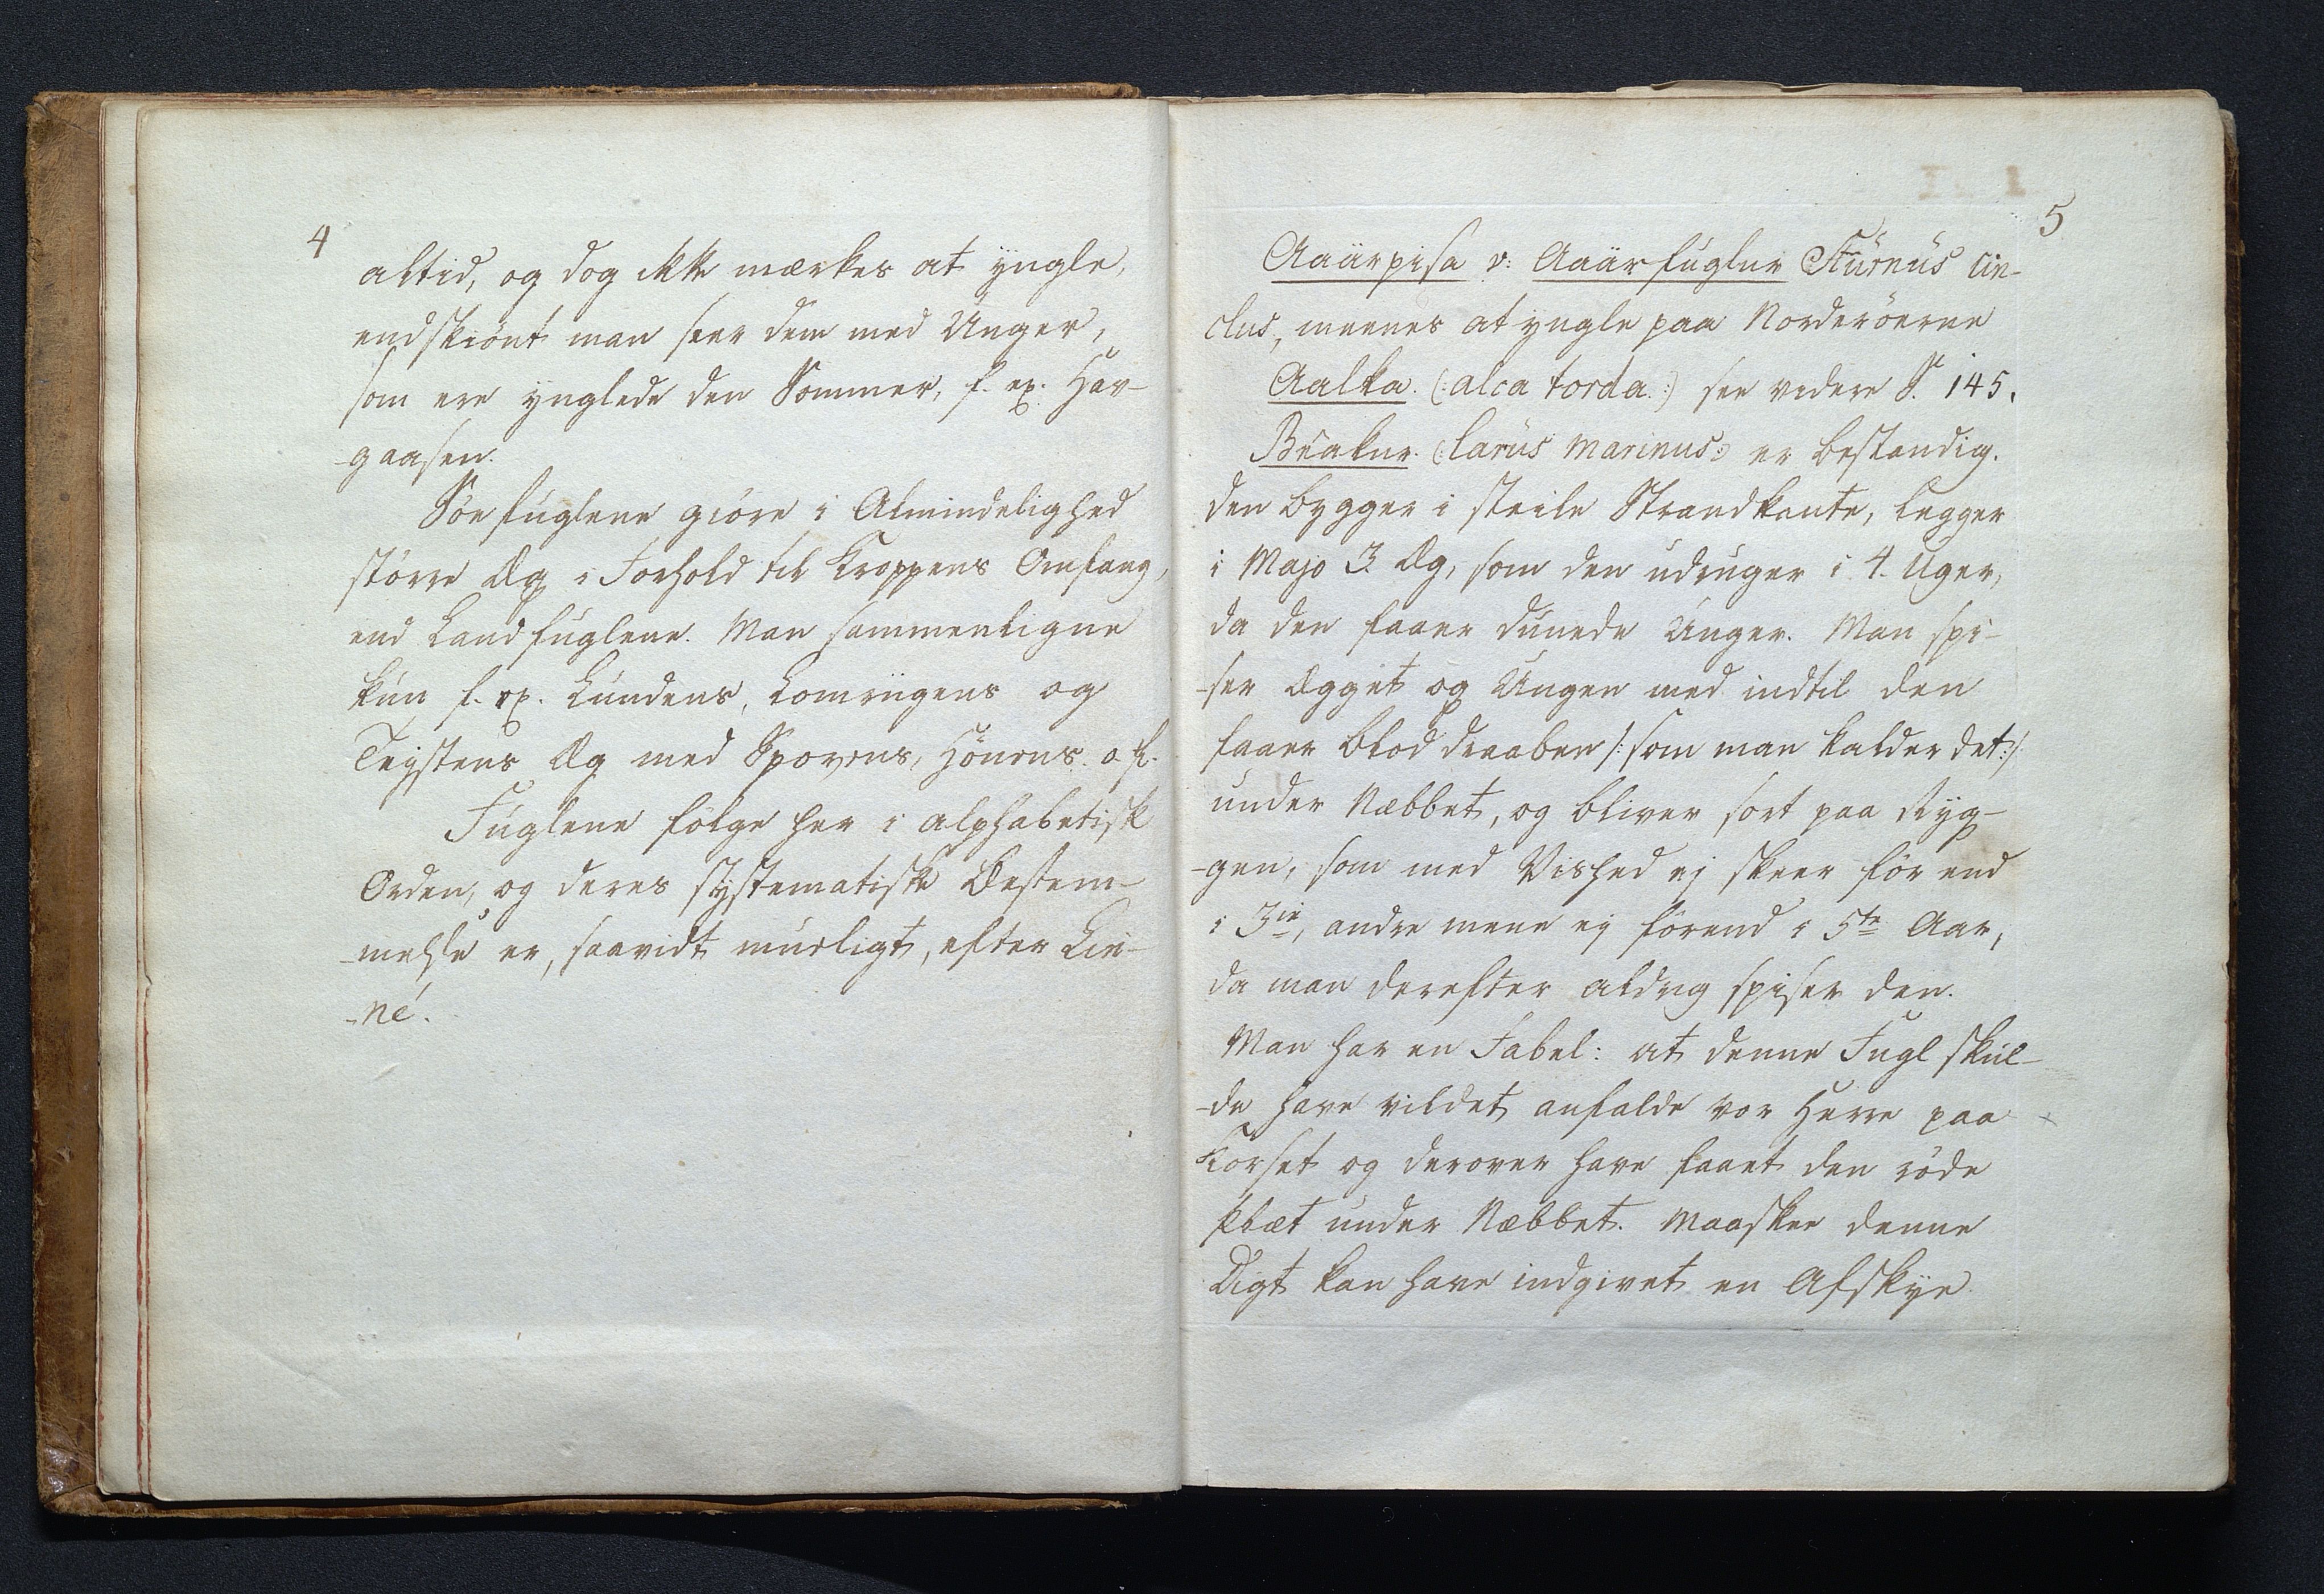 4
altid, og dog ikke mærkes at yngle,
endskiönt man seer dem med Unger,
som ere ynglede den Sommer, f. ex. Hav-
-gaasen.
Söefuglene giöre i Almindelighed
större Æg i Forhold til Kroppens Omfang,
end Landfuglene. Man sammenligne
kun f. ex. Lundens, Lomvigens og
Teystens Æg med Spovens, Hönens o. fl.
Fuglene fölge her i alphabetisk
Orden, og deres systematiske Bestem-
-melse er, saavidt mueligt, efter Lin-
-né.
5
Aaärpisa v: Aaärfuglur Sturnus cin-
clus, meenes at yngle paa Norderöerne
Aalka. (: alca torda :) see videre S. 145.
Bñakur. (: larus marinus :) er bestandig.
den bygger i steile Strandkante, legger
i Majo 3 Æg, som den udruger i 4. Uger,
da den faaer dunede Unger. Man spi-
-ser Ægget og Ungen med indtil den
faaer bloddraaben /: som man kalder det :/
under Næbbet, og bliver sort paa Ryg-
-gen, som med Vished ej skeer för end
i 3ie, andre mene ej förend i 5te Aar,
da man derefter aldrig spiser den.
Man har en Fabel: at denne Fugl skul-
-de have vildet anfalde vor Herre paa
Korset og derover have faaet den röde
Plæt under Næbbet. Maaskee denne
Digt kan have indgivet en Afskye